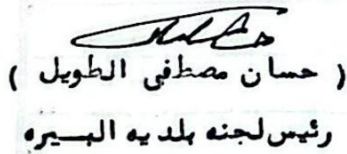 ( حسان مصطفى الطويل )
رئيس لجنه بلديه البيره